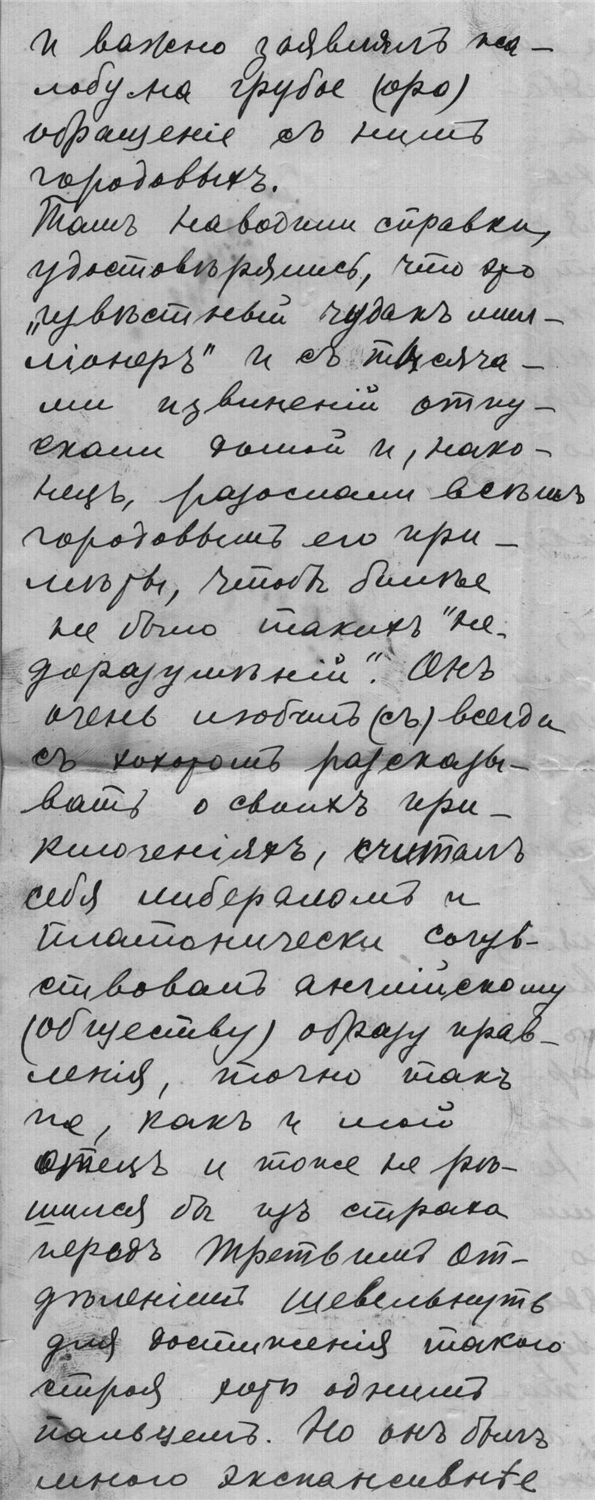 и важно заявлялъ жа-
лобу на грубое (оро)
обращеніе съ нимъ
городовыхъ.
Тамъ наводили справки,
удостовѣрялись, что это
„извѣстный чудакъ мил-
ліонеръ" и съ тысяча-
ми извиненій отпу-
скали домой и, нако-
нецъ, разослали всѣмъ
городовымъ его при-
мѣты, чтобъ болѣе
не было такихъ "не-
доразумѣній". Онъ
очень любилъ (съ) всегда
съ хохотомъ разсказы-
вать о своихъ при-
ключеніяхъ, считалъ
себя либераломъ и
платонически сочув-
ствовалъ англійскому
(обществу) образу прав-
ленія, точно такъ
же, какъ и мой
отецъ и тоже не рѣ-
шился бы изъ страха
передъ Третьимъ От-
дѣленіемъ шевельнуть
для достиженія такого
строя хоть однимъ
пальцемъ. Но онъ былъ
много экспансивнѣе